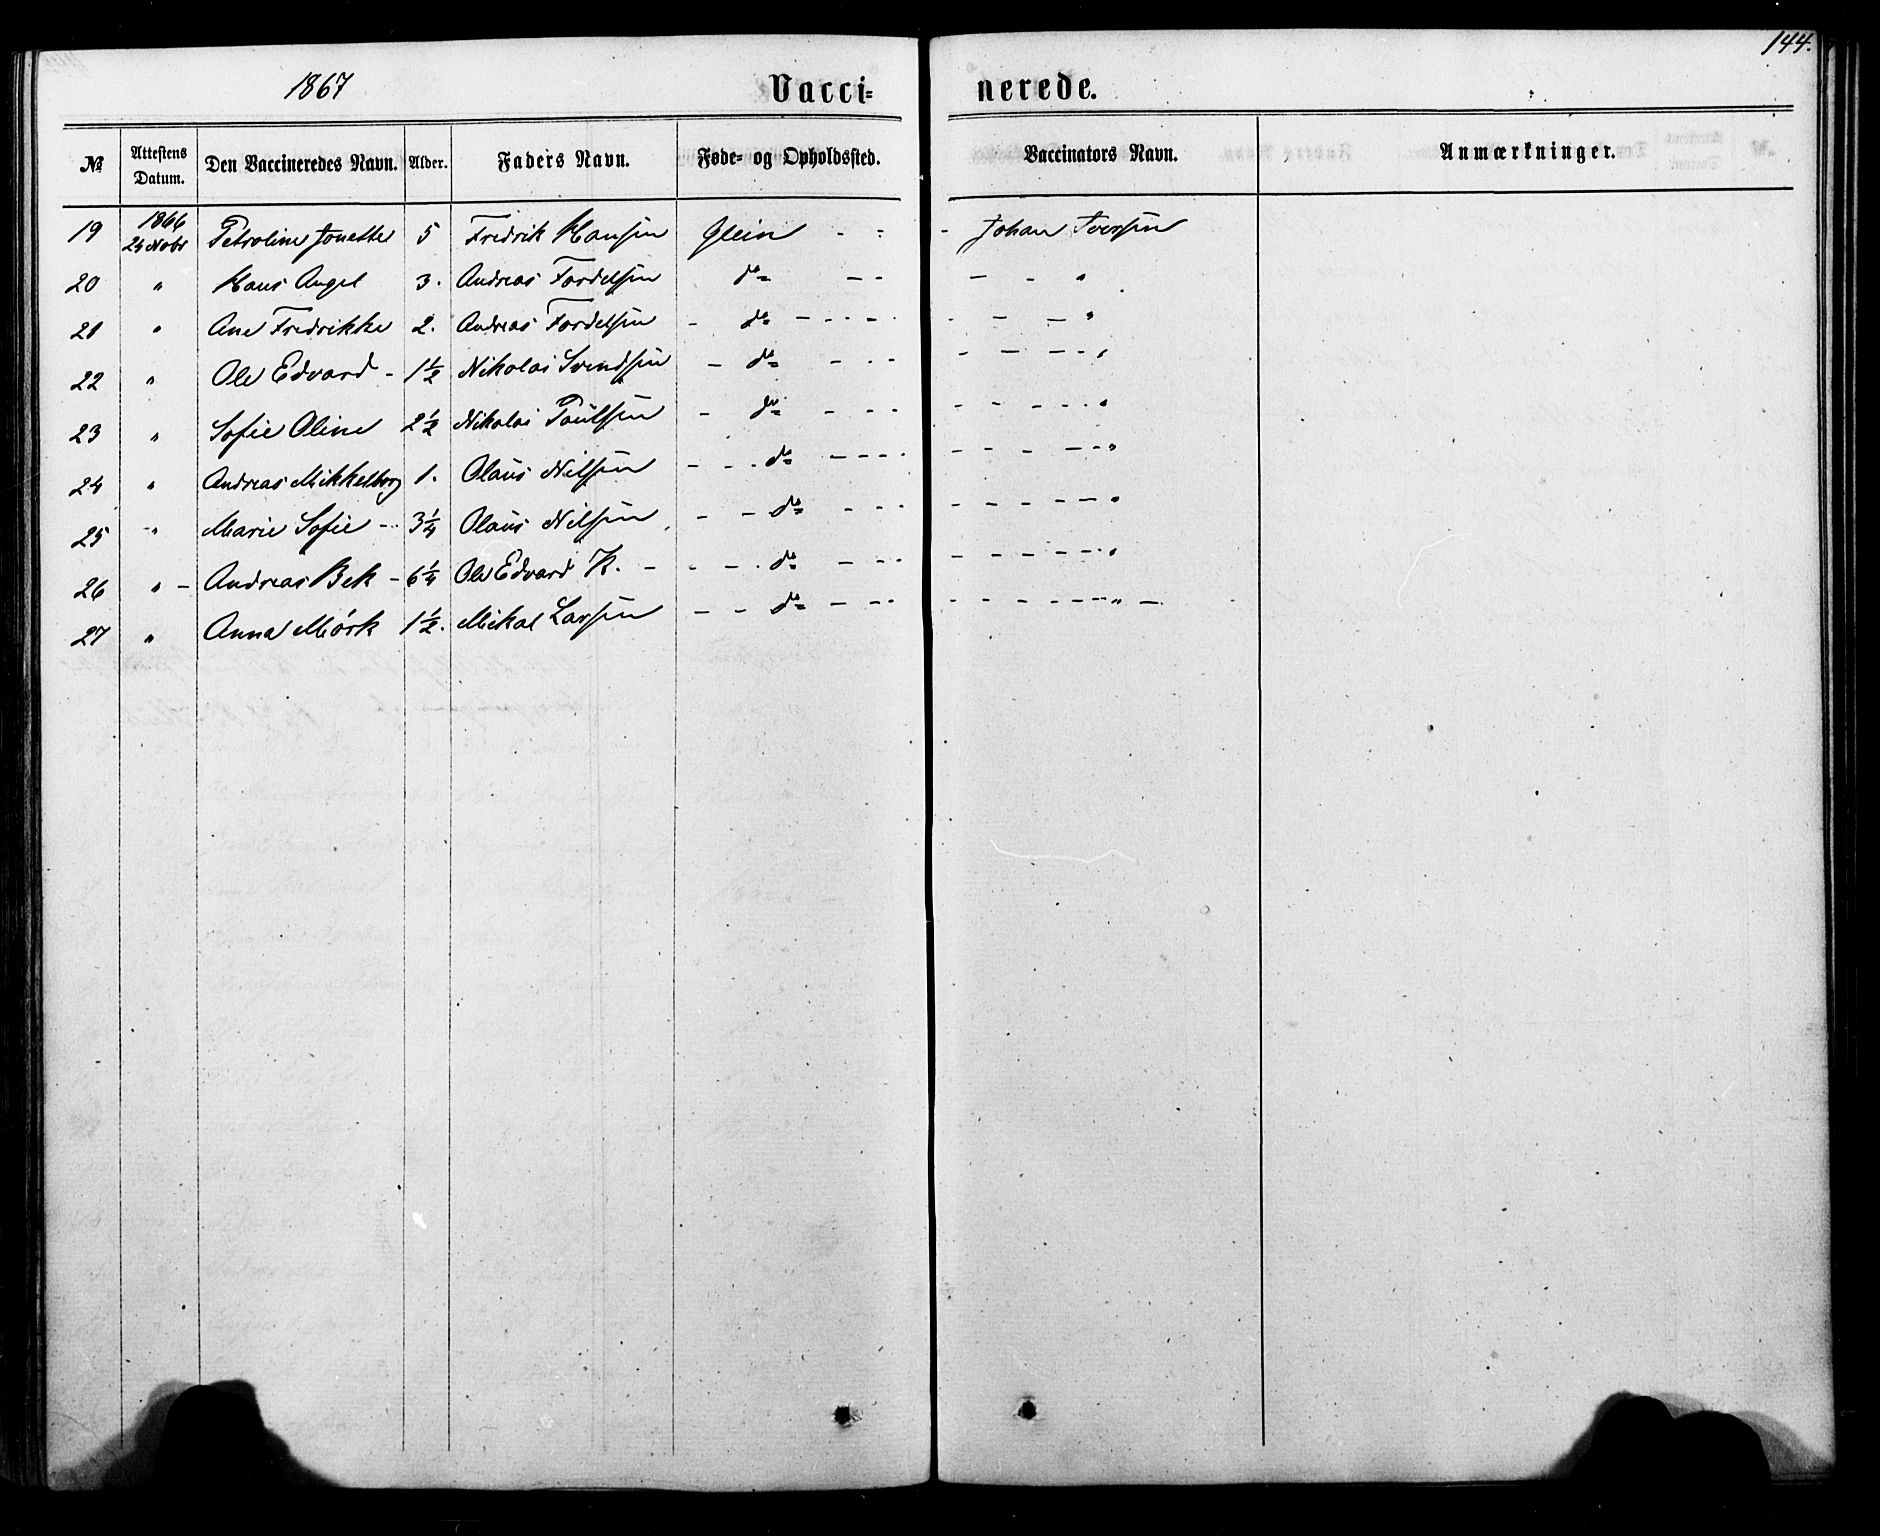 144.
1867 Vacci= nerede.
№ Attestens Datum. Den Vaccineredes Navn. Alder. Faders Navn. Føde= og Opholdssted. Vaccinators Navn. Anmærkninger.
19 1866 24 Novbr Petroline Jonette 5 Fredrik Hansen Glein - - - Johan Iversen
20 " Hans Angel 3. Andreas Tordelsen do - - - - "
21 " Ane Fredrikke 2. Andreas Tordelsen - do - - - - - - - "
22 " Ole Edvard - 1½ Nikolai Svendsen - do - - - - - - - "
23 " Sofie Oline 2½ Nikolai Paulsen - do - - - - - - - - "
24 " Andreas Mikkelborg 1. Olaus Nilsen - - - do - - - - - - - - - "
25 " Marie Sofie - 3¼ Olaus Nilsen - - do - - - - - - - - - "
26 " - Andreas Bek - 6¼ Ole Edvard K. - - - - do - - - - - - - - - "
27 " Anna Mörk 1½. Mikal Larsen - - do - - - - - - - - - " -